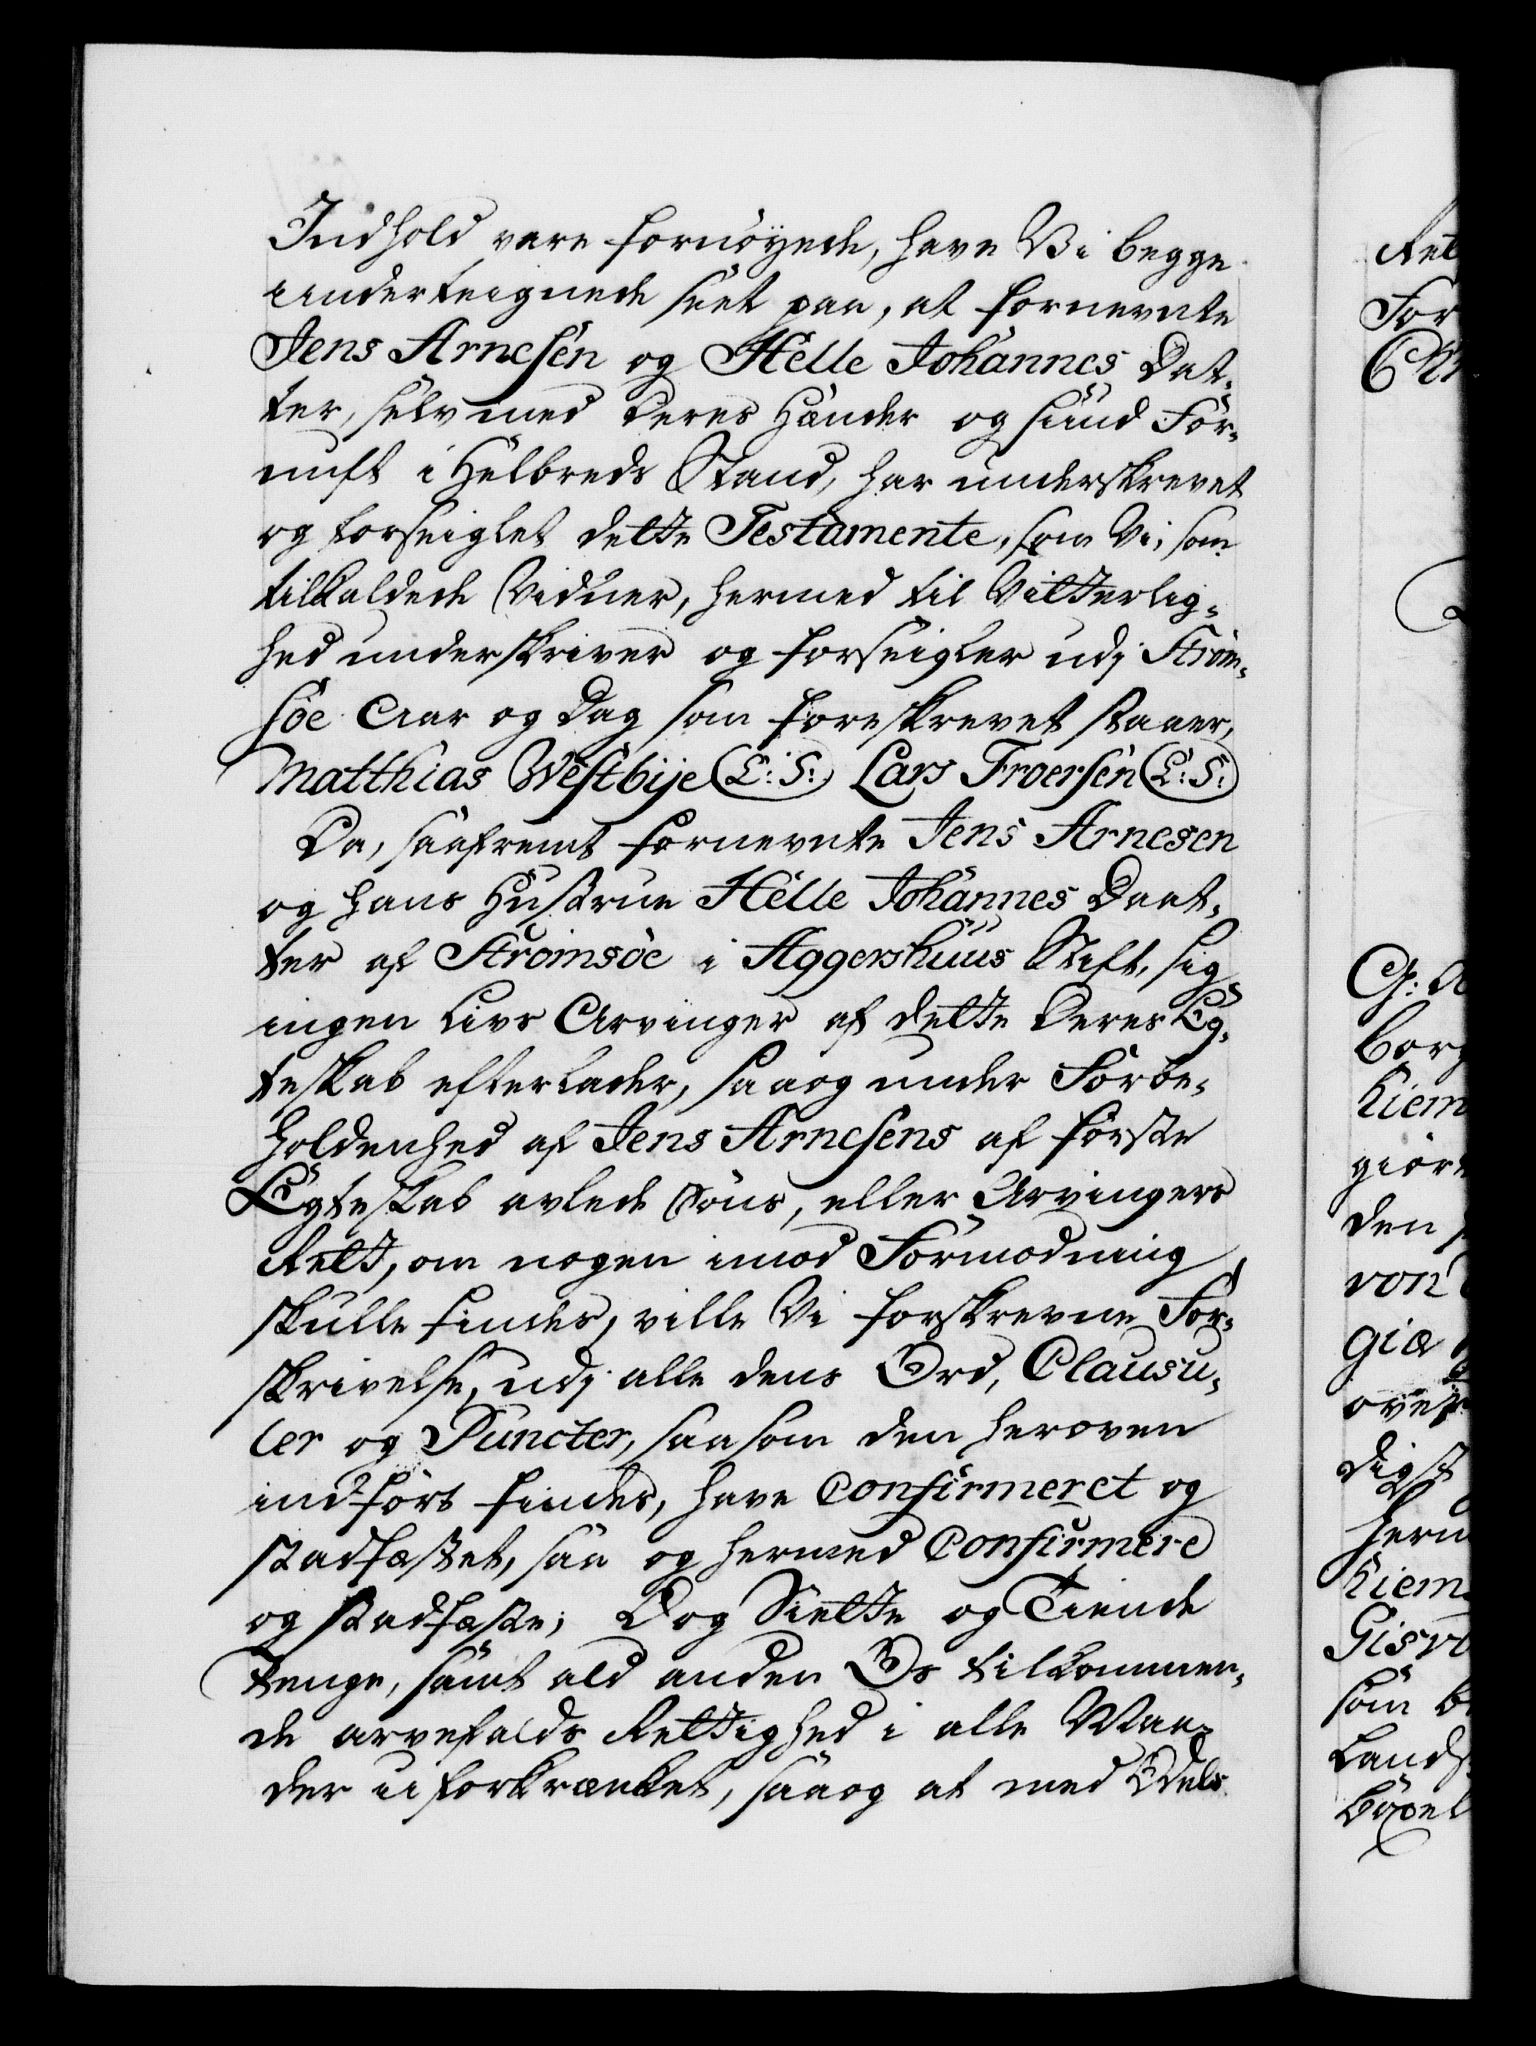 Indhold vare fornöyede, have Vi begge
underteignede seet paa, at fornevnte
Jens Arnesen og Helle Johannes Dat-
ter, selv med deres Hænder og sund For-
nuft i Helbreds Stand, har underskrevet
og forseiglet dette Testamente, som Vi, som
tilkaldede Vidner, hermed til Vitterlig-
hed underskriver og forseigler udj Ström-
söe Aar og Dag som foreskrevet staaer,
Matthias Westbije L: S: Lars Troersen L: S:
Da, saafremt fornevnte Jens Arnesen
og hans Hustrue Helle Johannes Daat-
ter af Strömsöe i Aggershuus Stift, sig
ingen Livs Arvinger af dette deres Eg-
teskab efterlader, saa og under Forbe-
holdenhed af Jens Arnesens af förste
Egteskab avlede Söns, eller Arvingers
Rett, om nogen imod Formodning
skulle findes, ville Vi forskrevne For-
skrivelse, udj alle dens Ord, Clausu-
ler og Puncter, saasom den heroven
indfört findes, have Confirmeret og
stadfæstet, saa og hermed Confirmere
og stadfæste; Dog Siette og Tiende
Penge, samt ald anden Os tilkommen-
de arvefalds Rettighed i alle Maa-
der uforkrænket, saa og at med Odels
Ret
For
Chr
G: A
borg
kiem
giöre
den
von
giæ
over
digst
herm
kiem
Gisvo
som be
Lands
boxel